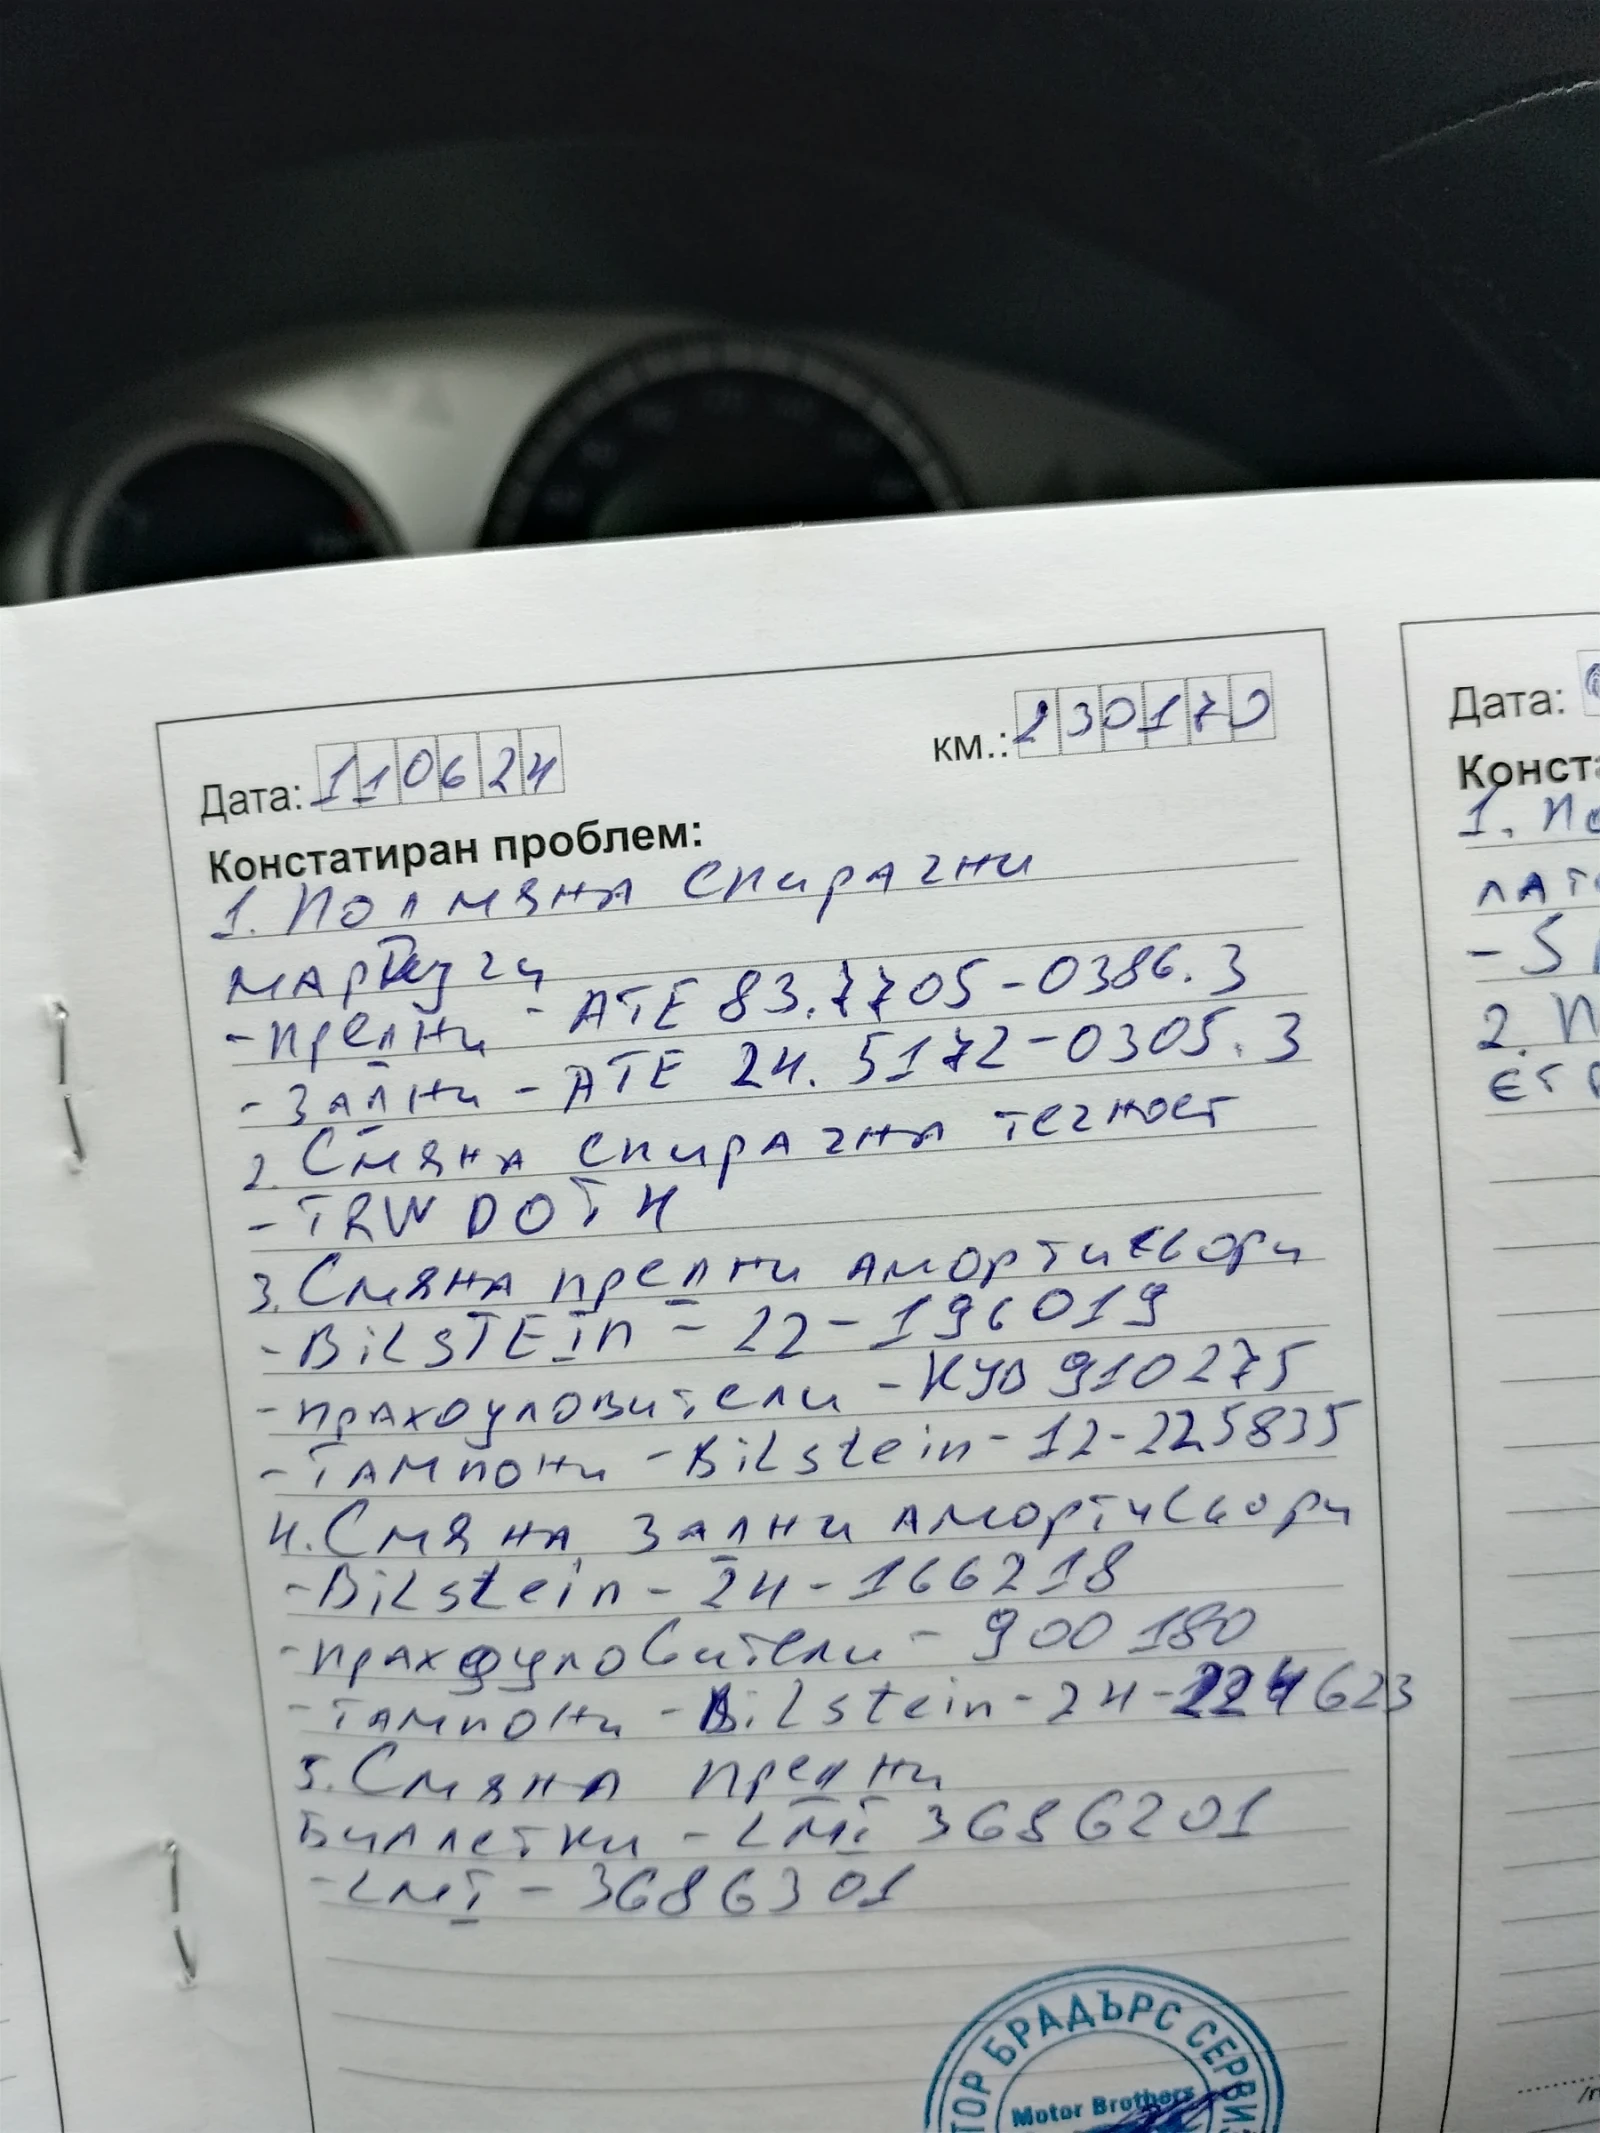 Дата: 110624
км.: 230170
Констатиран проблем:
1. Подмяна спирачни
маркучи
- предни - ATE 83.7705-0386.3
- задни - ATE 24.5172-0305.3
2. Смяна спирачна течност
- TRW DOT 4
3. Смяна предни амортисьори
- BiLSTEIn - 22-196019
- прахоуловители - KYB 910275
- тампони - Bilstein - 12-225835
4. Смяна задни амортисьори
- Bilstein - 24-166218
- прахоуловители - 900180
- тампони - Bilstein - 24-224623
5. Смяна предни
биалетки - LMI 3686201
- LMI - 3686301
БРАДЪРС СЕРВИЗ
Motor Brothers
Дата:
1.
- S
2.